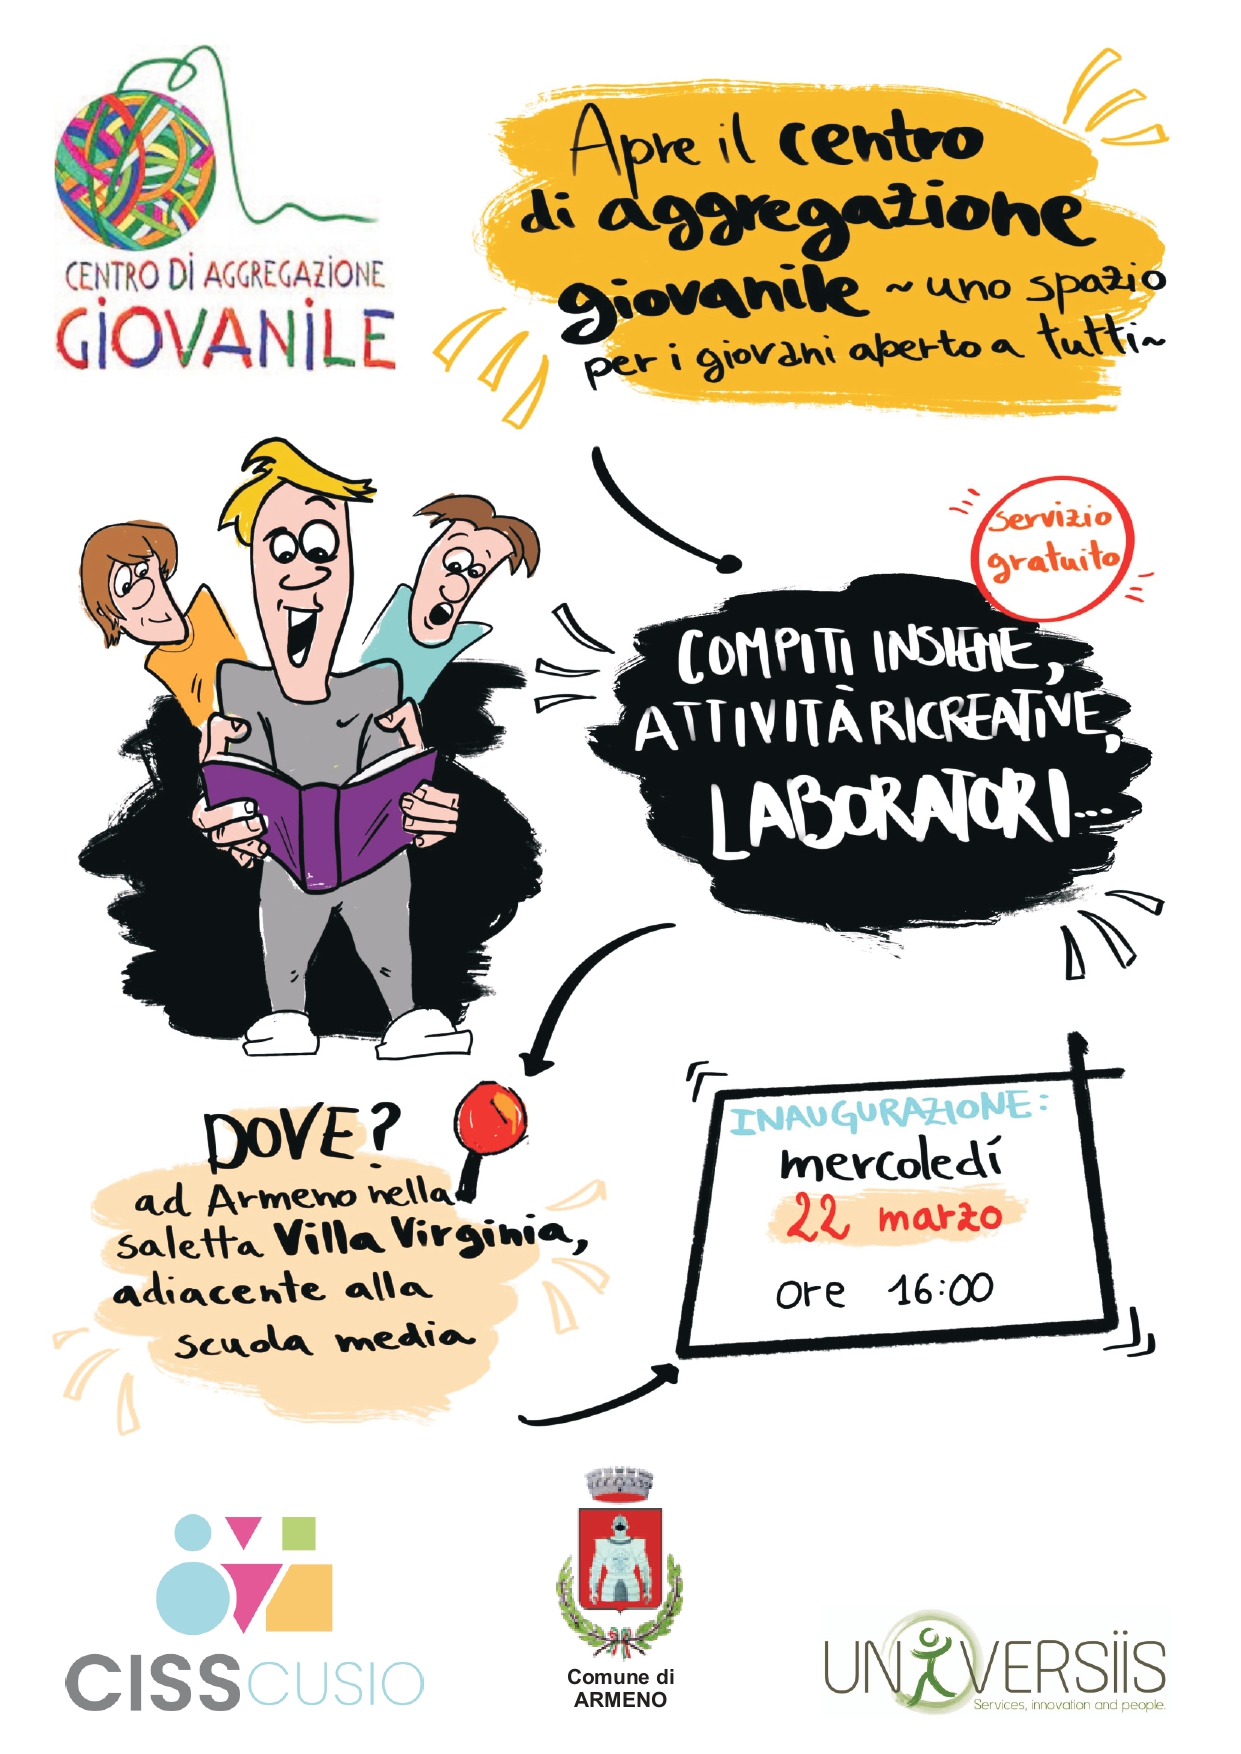 CENTRO DI AGGREGAZIONE
GIOVANILE
Apre il centro
di aggregazione
giovanile ~ uno spazio
per i giovani aperto a tutti~
servizio
gratuito
COMPITI INSIEME,
ATTIVITÀ RICREATIVE,
LABORATORI...
DOVE?
ad Armeno nella
saletta Villa Virginia,
adiacente alla
scuola media
INAUGURAZIONE:
mercoledí
22 marzo
ore 16:00
CISSCUSIO
Comune di
ARMENO
UNIVERSIIS
Services, innovation and people.